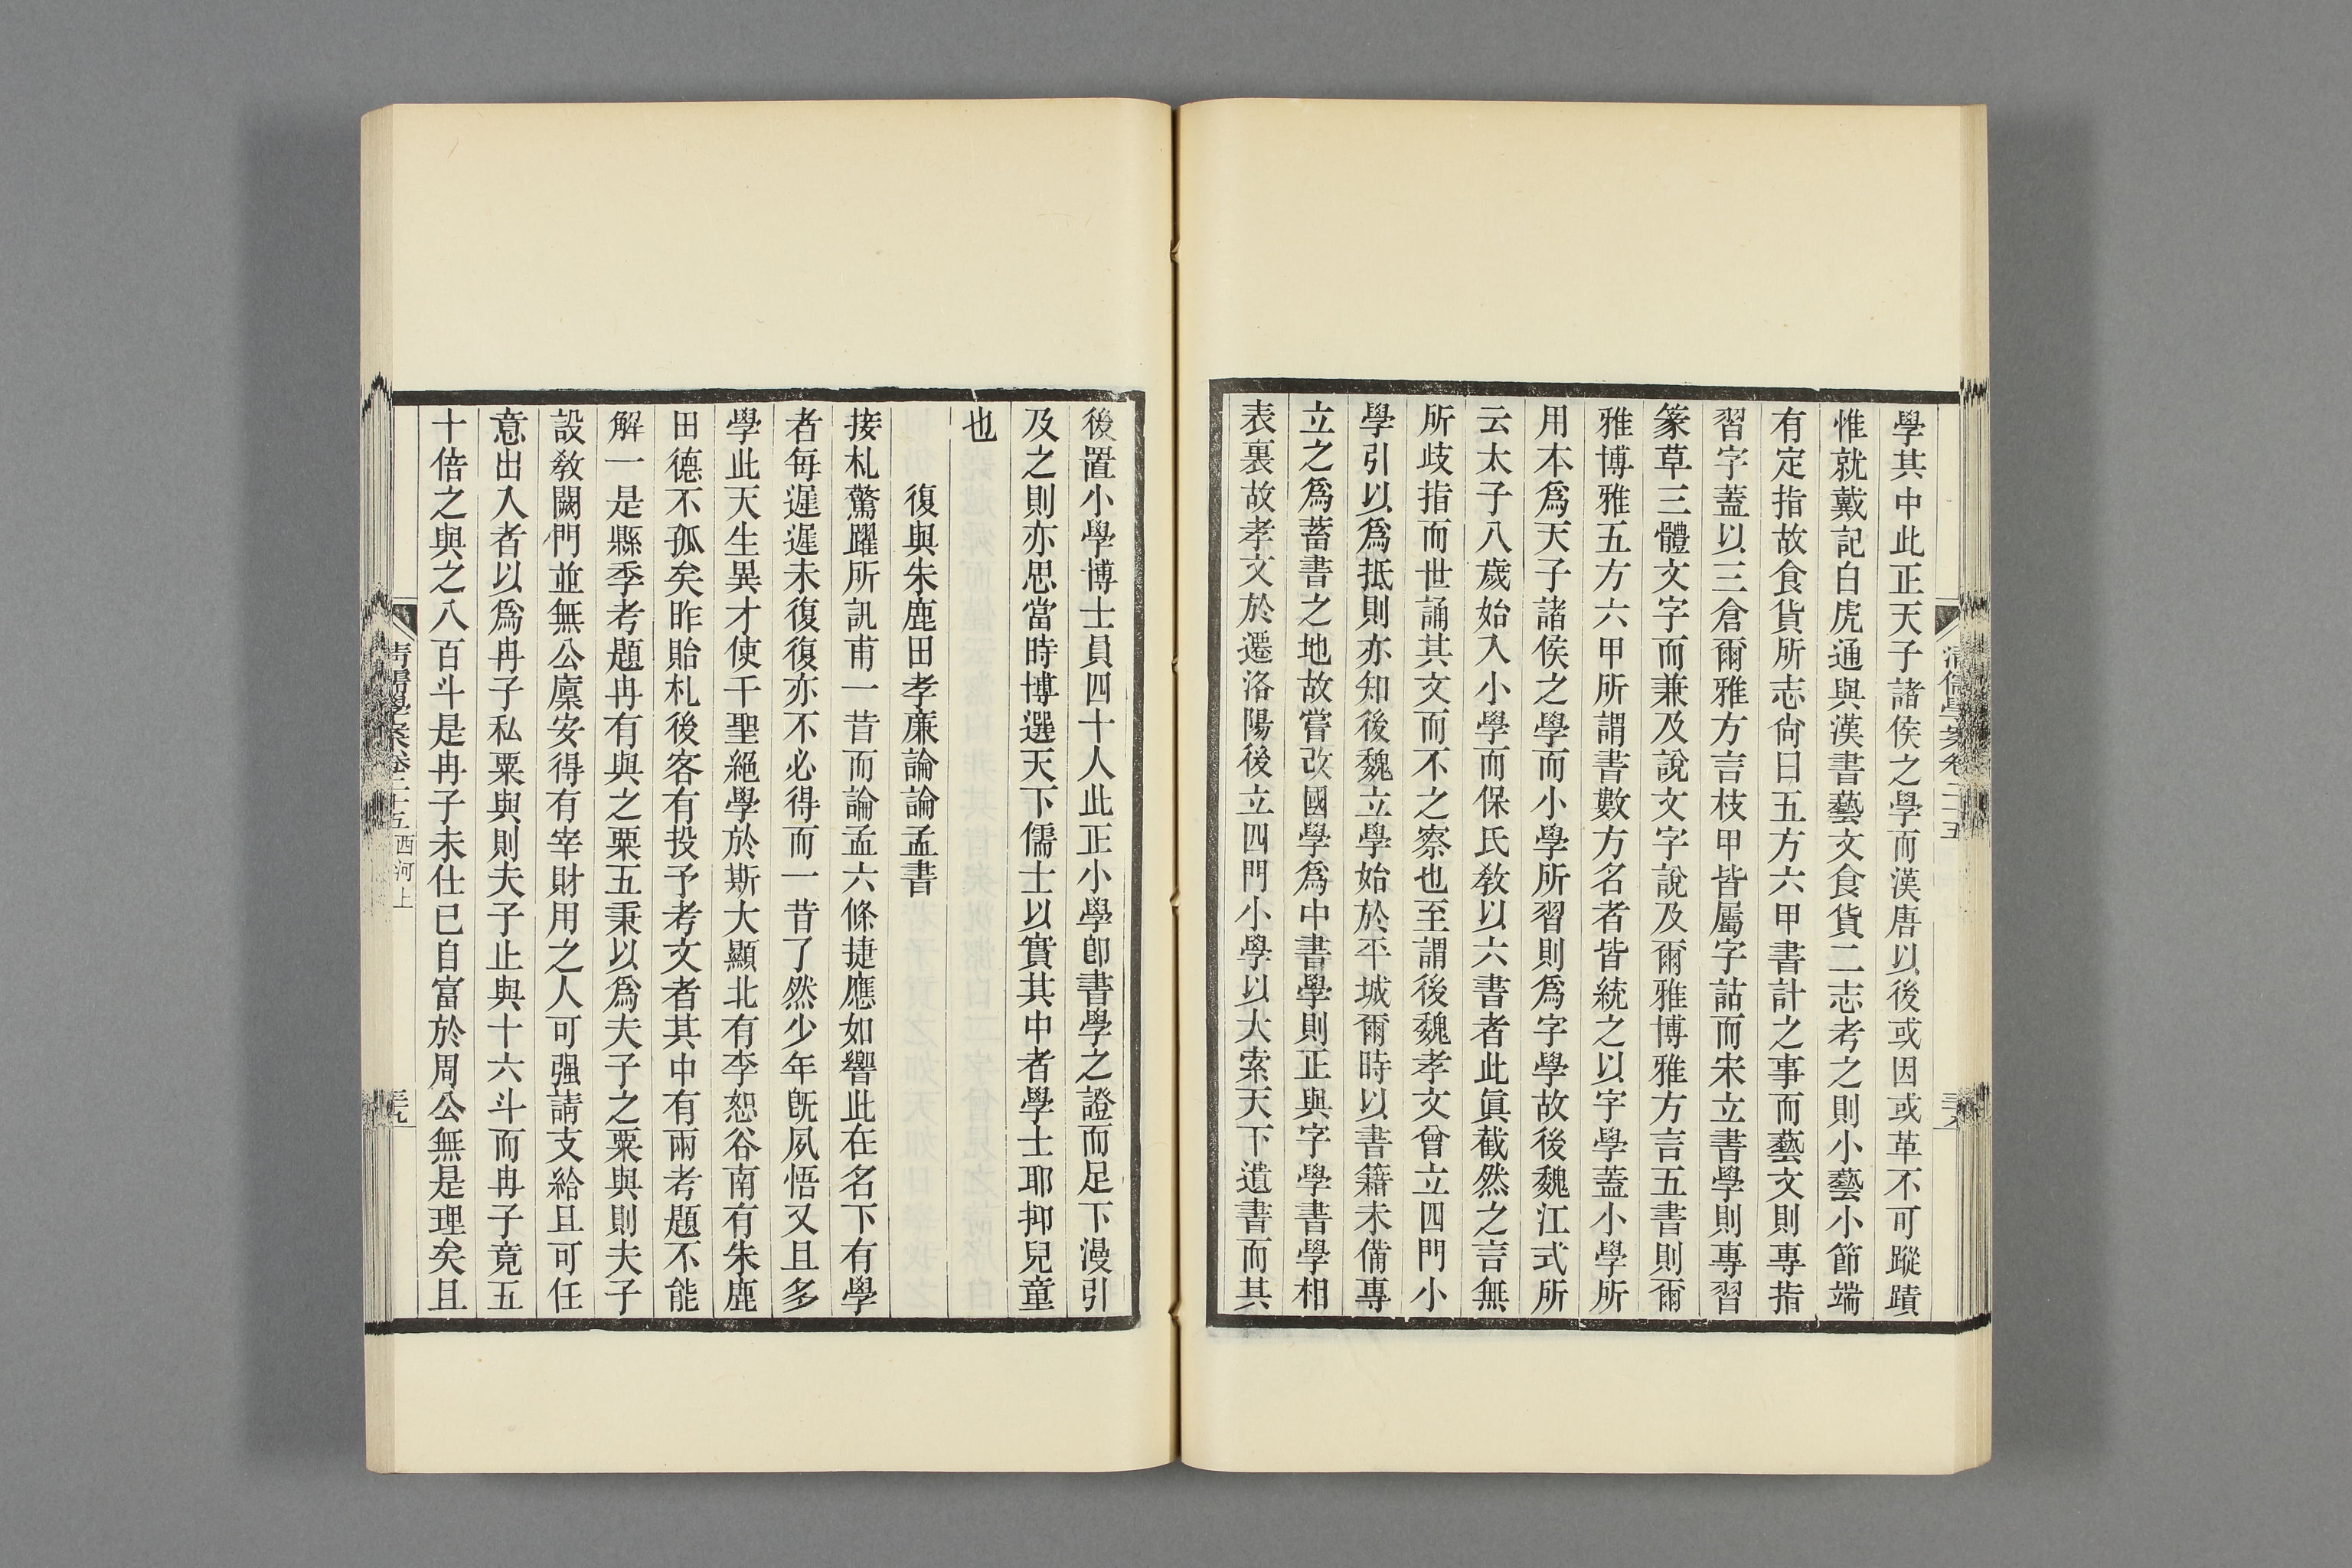 學其中此正天子諸侯之學而漢唐以後或因或革不可蹤蹟
惟就戴記白虎通與漢書藝文食貨二志考之則小藝小節端
有定指故食貨所志尙曰五方六甲書計之事而藝文則專指
習字蓋以三倉爾雅方言枝甲皆屬字詁而宋立書學則專習
篆草三體文字而兼及說文字說及爾雅博雅方言五書則爾
雅博雅五方六甲所謂書數方名者皆統之以字學蓋小學所
用本爲天子諸侯之學而小學所習則爲字學故後魏江式所
云太子八歲始入小學而保氏敎以六書者此眞截然之言無
所歧指而世誦其文而不之察也至謂後魏孝文曾立四門小
學引以爲抵則亦知後魏立學始於平城爾時以書籍未備專
立之爲蓄書之地故嘗改國學爲中書學則正與字學書學相
表裏故孝文於遷洛陽後立四門小學以大索天下遺書而其
清儒學案卷二十五
後置小學博士員四十人此正小學卽書學之證而足下漫引
及之則亦思當時博選天下儒士以實其中者學士耶抑兒童
也
復與朱鹿田孝廉論論孟書
接札驚躍所訊甫一昔而論孟六條捷應如響此在名下有學
者每遲遲未復復亦不必得而一昔了然少年旣夙悟又且多
學此天生異才使千聖絕學於斯大顯北有李恕谷南有朱鹿
田德不孤矣昨貽札後客有投予考文者其中有兩考題不能
解一是縣季考題冉有與之粟五秉以爲夫子之粟與則夫子
設敎闕門並無公廩安得有宰財用之人可强請支給且可任
意出入者以爲冉子私粟與則夫子止與十六斗而冉子竟五
十倍之與之八百斗是冉子未仕已自富於周公無是理矣且
清儒學案卷二十五 西河上